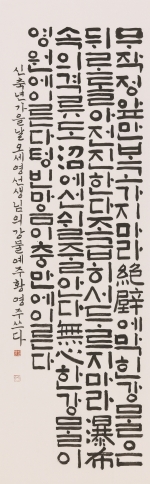 무작정앞만보고가지마라絶壁에막힌강물은
뒤로돌아전진한다조급히서두르지마라瀑布
속의격류도沼에선쉴줄을아다無心한강물이
영원에이른다텅빈마음이충만에이른다
신축년가을날오세영선생님의강물예주황영주쓰다